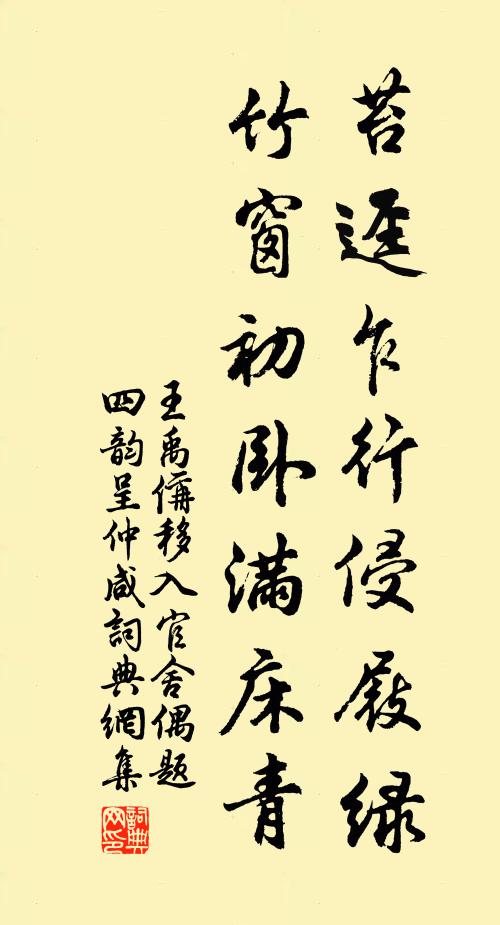 苔迳乍行侵屐绿
竹窗初卧满床青
王禹偁移入官舍偶题
四韵呈仲咸詞典網集
詞典网印